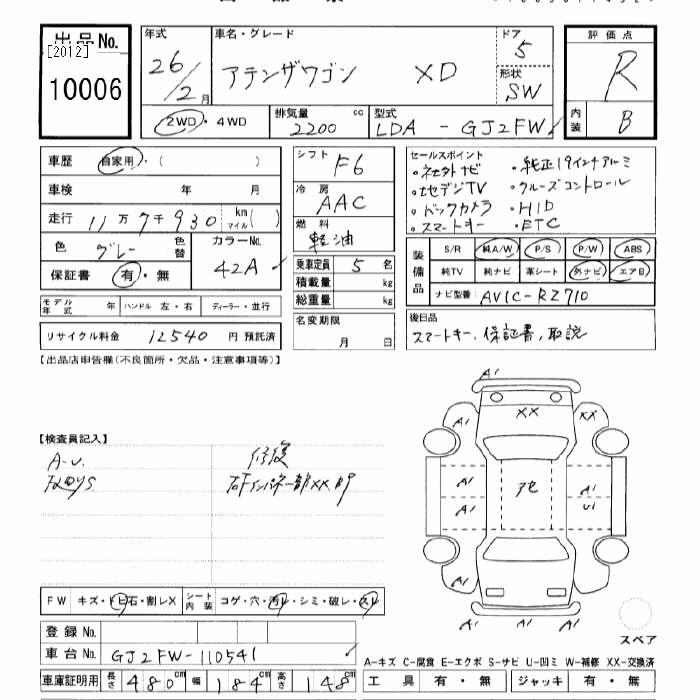 出品No.
[2012]
10006
年式
26/2月
車名・グレード
アテンザワゴン XD
ドア
5
形状
SW
評価点
R
内装
B
2WD・4WD
排気量
2200 cc
型式
LDA - GJ2FW
車歴 自家用・( )
車検 年 月
走行 11万7千930 km マイル( )
色 グレー 色替
カラーNo. 42A
保証書 有・無
モデル年式 年 ハンドル 左・右 ディーラー・並行
リサイクル料金 12540 円 預託済
シフト F6
冷房 AAC
燃料 軽油
乗車定員 5 名
積載量 kg
総重量 kg
名変期限
月 日
セールスポイント
・社外ナビ ・純正19インチアルミ
・地デジTV ・クルーズコントロール
・バックカメラ ・HID
・スマートキー ・ETC
装備品
S/R 純A/W P/S P/W ABS
純TV 純ナビ 革シート 外ナビ エアB
ナビ型番: AVIC-RZ710
後日品
スマートキー、保証書、取説
【出品店申告欄(不良箇所・欠品・注意事項等)】
【検査員記入】
A-U.
修復
XX
A1
A1
XX
A1
A1
A1
A1
U1
A1
A1
A1
A1
FW キズ・トビ石・割レX
シート内装 コゲ・穴・汚レ・シミ・破レ・スレ
登録No.
車台No. GJ2FW-110541
車庫証明用 長さ 480cm 幅 184cm 高さ 148cm
スペア
A-キズ C-腐食 E-エクボ S-サビ U-凹ミ W-補修 XX-交換済
工具 有・無 ジャッキ 有・無